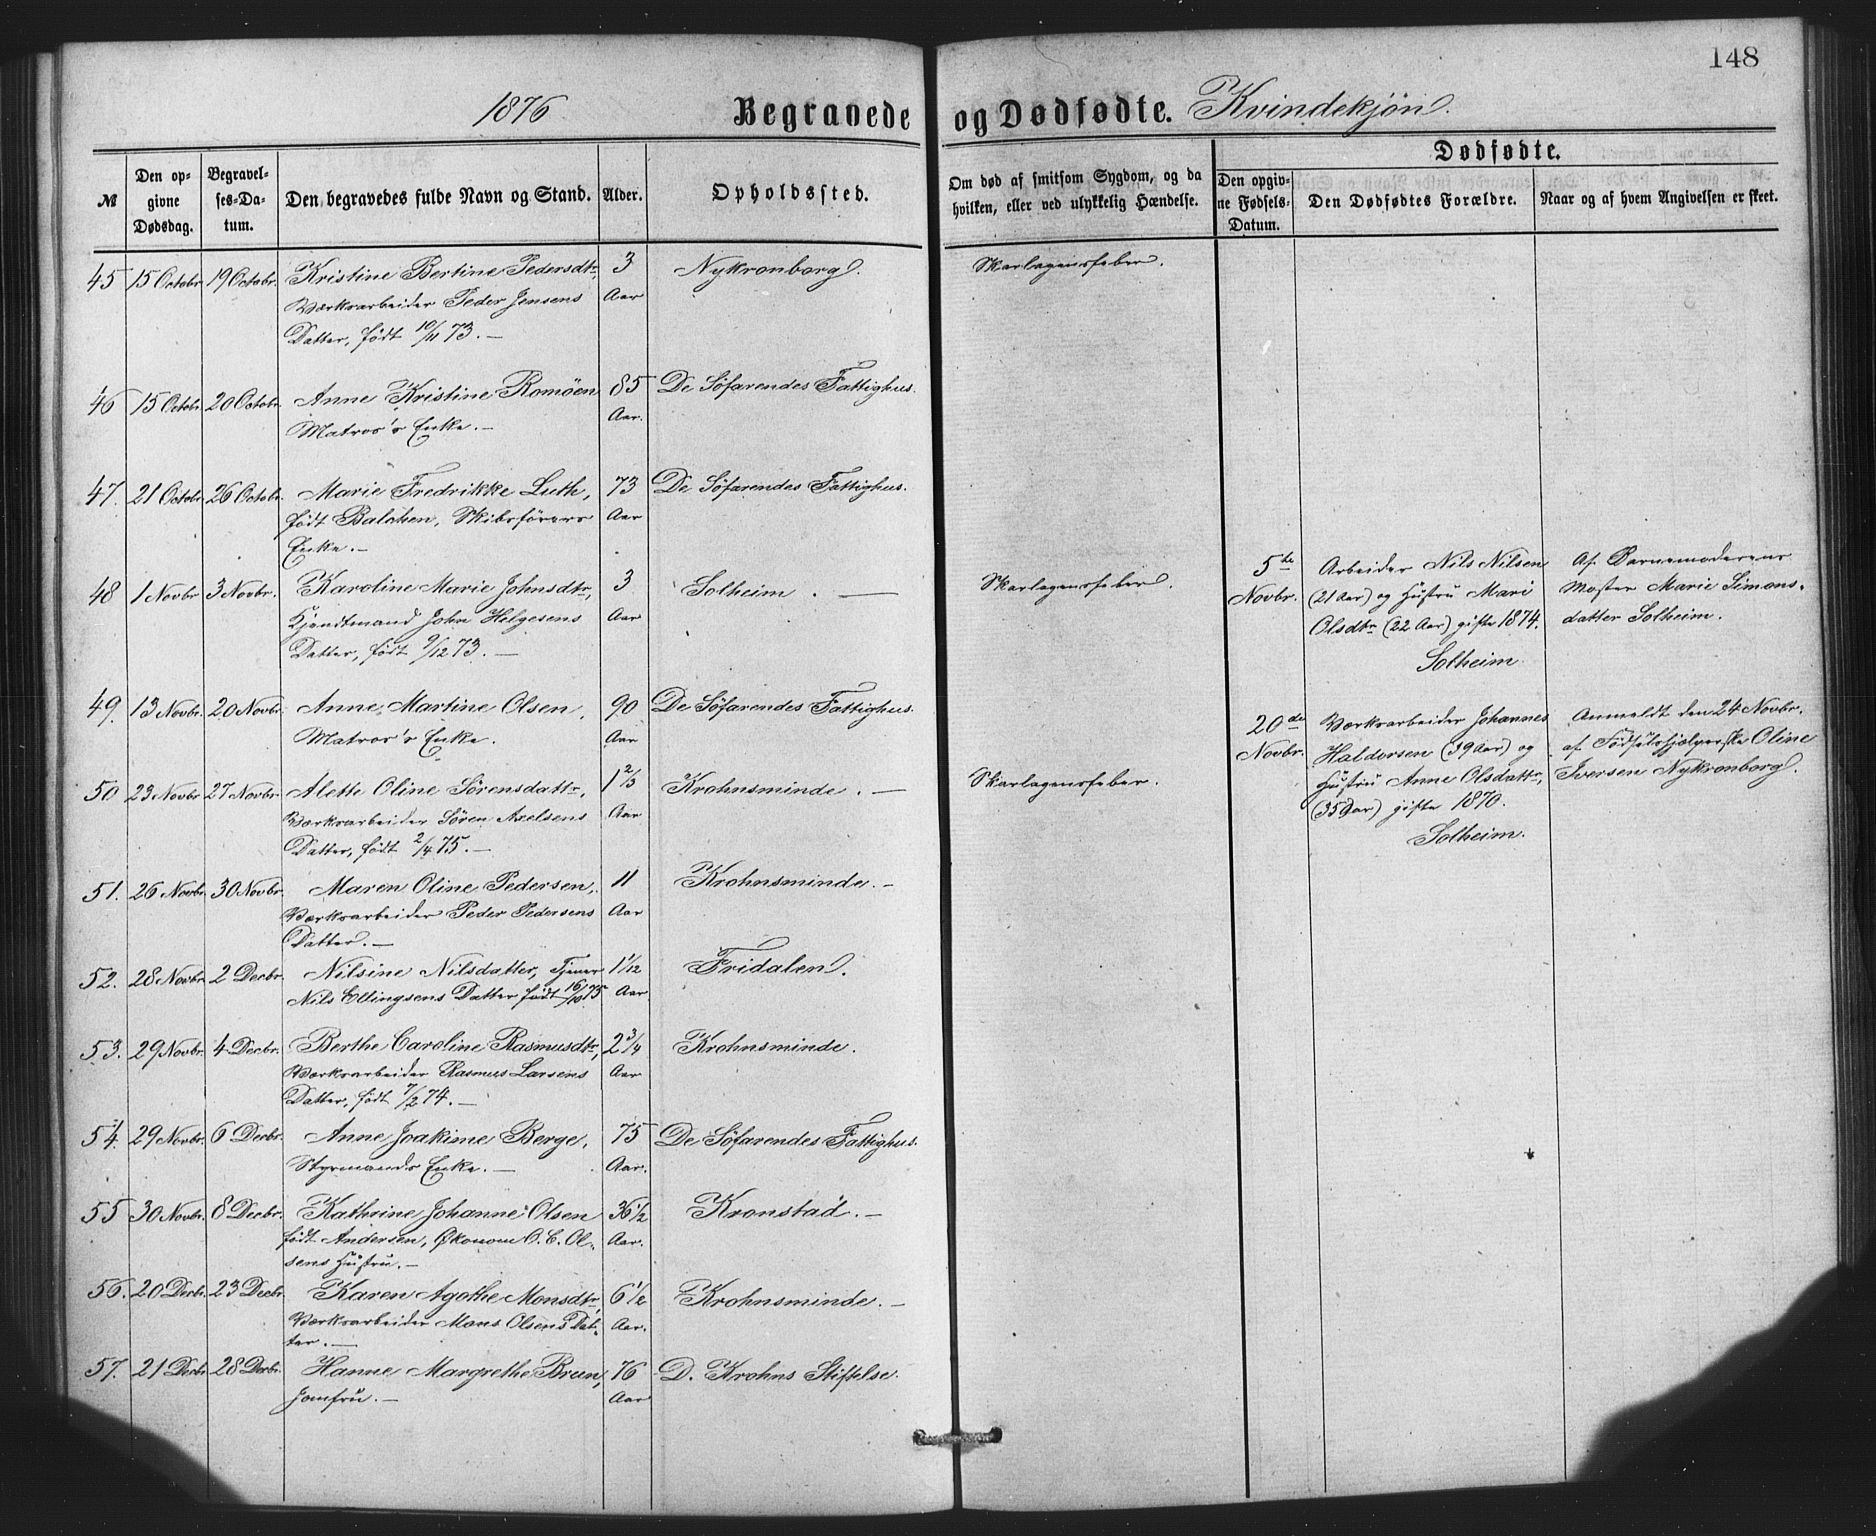 148
1876 Begravede og Dødfødte. Kvindekjøn.
№ | Den opgivne Dødsdag. | Begravelses-Datum. | Den begravedes fulde Navn og Stand. | Alder. | Opholdssted. | Om død af smitsom Sygdom, og da hvilken, eller ved ulykkelig Hændelse. | Dødfødte. | Den opgivne Fødsels-Datum. | Den Dødfødtes Forældre. | Naar og af hvem Angivelsen er skeet.
45 15 Octobr 19 Octobr. Kristine Bertine Pedersdtr, 3 Nykronborg. Skarlagensfeber.
Værksarbeider Peder Jensens Aar
Datter, født 10/11 73. —
46 15 Octobr. 20 Octobr. Anne Kristine Romöen 85 De Söfarendes Fattighus.
Matros's Enke. — Aar.
47. 21 Octobr. 26 Octobr. Marie Fredrikke Luth, 73 De Söfarendes Fattighus.
født Balchen, Skibsförers Aar
Enke. —
48 1 Novbr 3 Novbr. Karoline Marie Johnsdtr, 3 Solheim. — Skarlagensfeber.
Kjendtmand John Helgesens Aar
Datter, født 9/12 73. —
49. 13 Novbr. 20 Novbr. Anne Martine Olsen, 90 De Söfarendes Fattighus.
Matros's Enke. Aar
50 23 Novbr 27 Novbr. Alette Oline Sörensdattr, 1 2/3 Krohnsminde. — Skarlagensfeber.
Værksarbeider Sören Axelsens Aar
Datter, født 2/4 75. —
51. 26 Novbr. 30 Novbr. Maren Oline Pedersen, 11 Krohnsminde. —
Værksarbeider Peder Pedersens Aar
Datter. —
52. 28 Novbr. 2 Decbr. Nilsine Nilsdatter, Tjener 1 1/12 Fridalen.
Nils Ellingsens Datter født 16/10 75 Aar
53. 29 Novbr. 4 Decbr. Berthe Caroline Rasmusdtr, 2 3/4 Krohnsminde.
Værksarbeider Rasmus Larsens Aar
Datter, født 7/2 74. —
54. 29 Novbr. 6 Decbr. Anne Joakime Berge, 75 De Söfarendes Fattighus.
Styrmands Enke. — Aar.
55 30 Novbr. 8 Decbr. Kathrine Johanne Olsen 36 1/2 Kronstad. —
født Andersen, Økonom O. C. Ol- Aar.
sens Hustru. —
56. 20 Decbr. 23 Decbr. Karen Agathe Monsdtr, 6 1/2 Krohnsminde. —
Værksarbeider Mons Olsens Dat- Aar.
ter. —
57. 21 Decbr 28 Decbr. Hanne Margrethe Brun, 76 D. Krohns Stiftelse.
Jomfru. — Aar
5te Arbeider Nils Nilsen Af Barnemoderens
Novbr. (21 Aar) og Hustru Mari Moster Marie Simons-
Olsdtr (22 Aar) gifte 1874. datter Solheim.
Solheim.
20de Værksarbeider Johannes Anmeldt den 24 Novbr.
Novbr. Haldorsen (39 Aar) og af Födselshjælperske Oline
Hustru Anne Olsdattr, Iversen Nykronborg.
(35 Aar) gifte 1870.
Solheim.